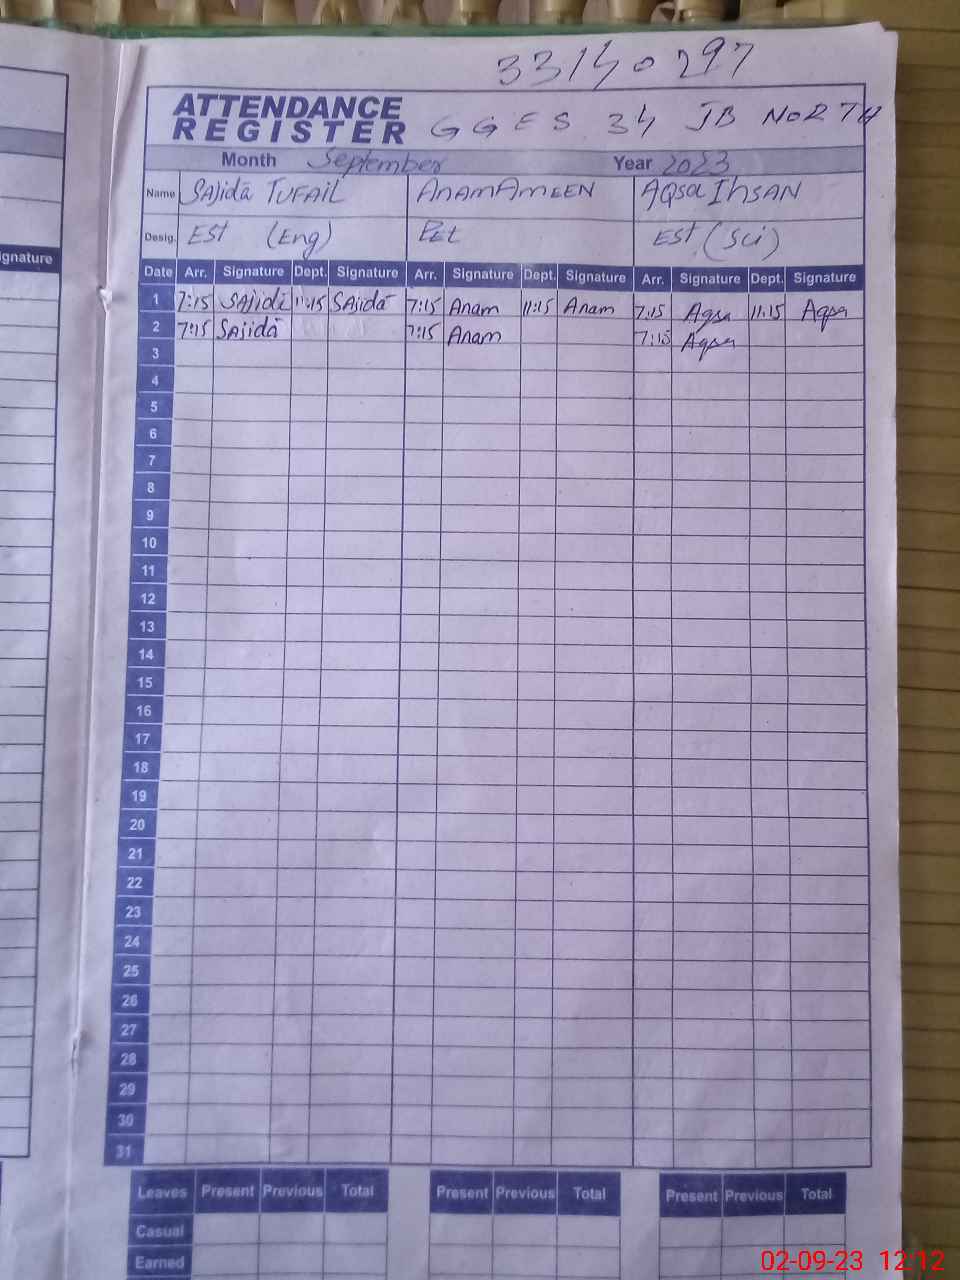 33140297
ATTENDANCE
REGISTER
GGES 34 JB NoRTH
Month September Year 2023
Name SAjida TUFAIL AnamAmEEN AQsa IhSAN
Desig. EST (Eng) EST (Sci)
gnature
Date Arr. Signature Dept. Signature Arr. Signature Dept. Signature Arr. Signature Dept. Signature
1 7:15 SAjida 11:15 SAjida 7:15 Anam 11:15 Anam 7:15 Aqsa 11:15 Aqsa
2 7:15 SAjida 7:15 Anam 7:15 Aqsa
3
4
5
6
7
8
9
10
11
12
13
14
15
16
17
18
19
20
21
22
23
24
25
26
27
28
29
30
31
Leaves Present Previous Total Present Previous Total Present Previous Total
Casual
Earned
02-09-23 12:12